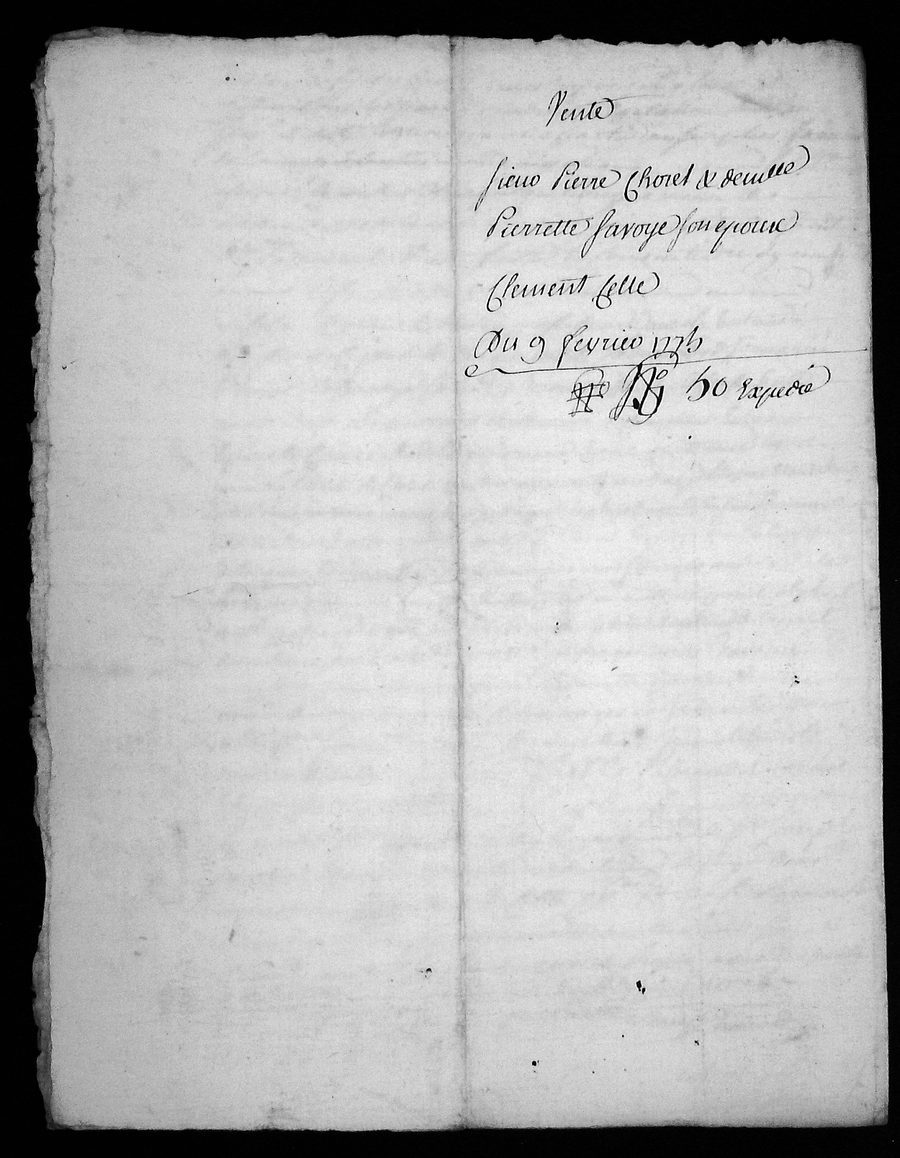 Vente
sieur Pierre Choret & demlle
Pierrette Savoye son epouse
Clement Celle
Du 9 fevrier 1775
No 50 Expedié